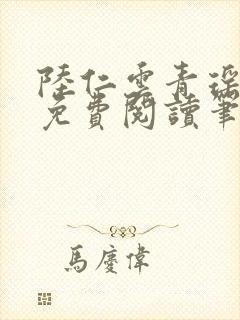 陸仁雲青瑶
免費閱讀筆
馬慶偉